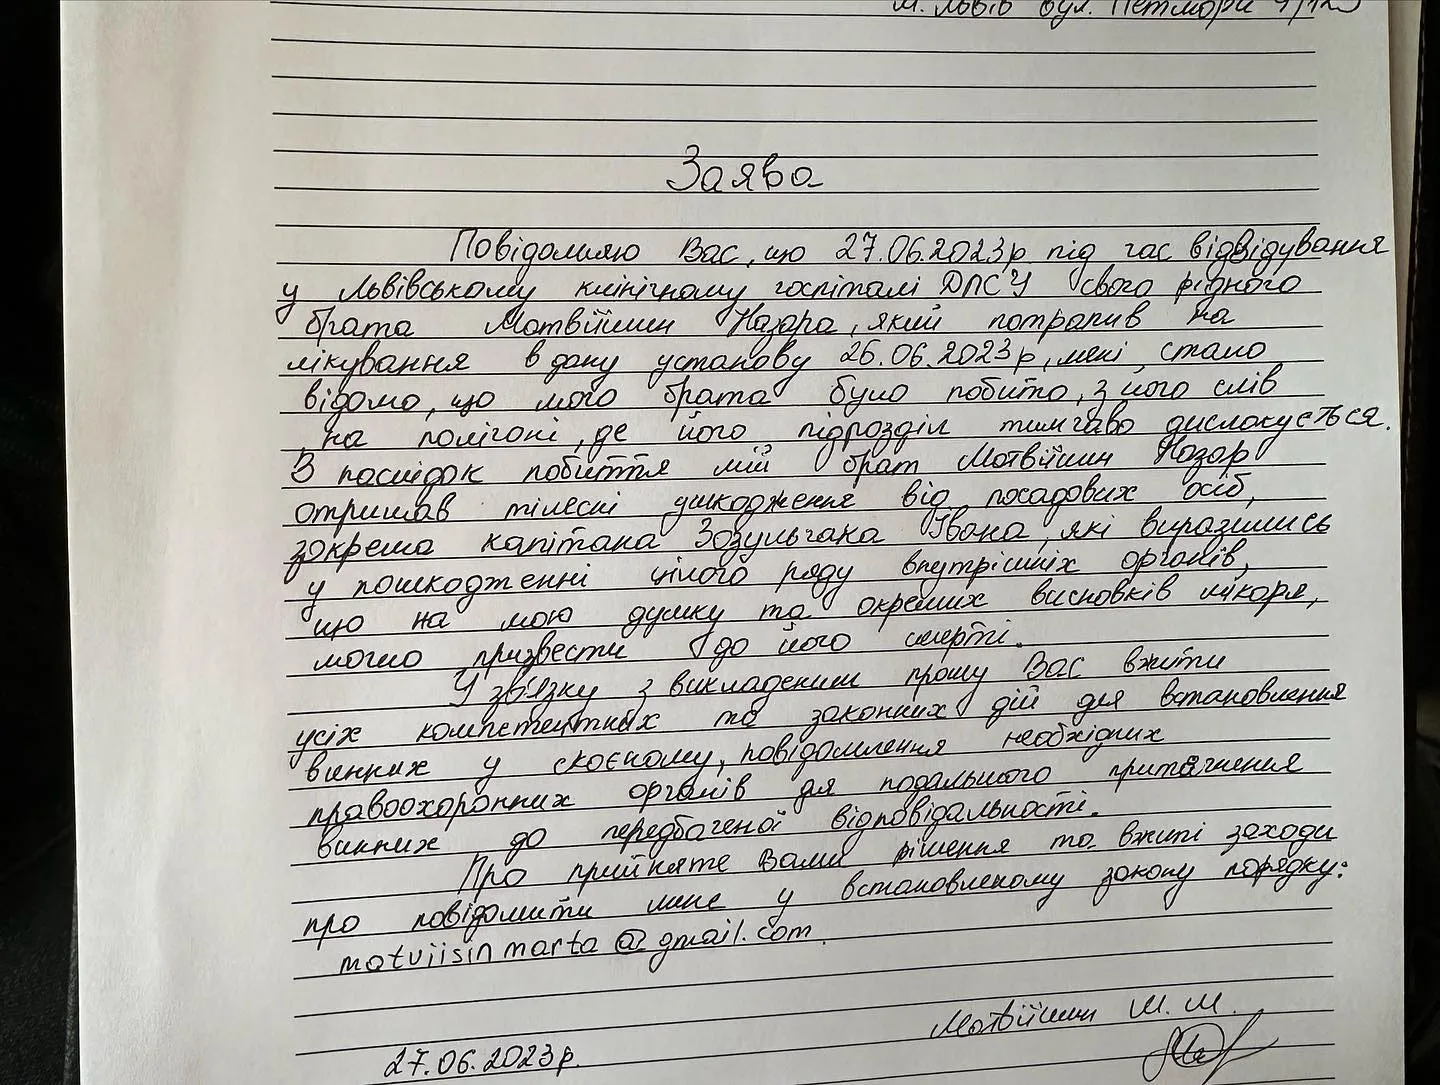 м. Львів вул. Гетмана
Заява
Повідомляю Вас, що 27.06.2023р під час відвідування
у Львівському клінічному госпіталі ДПСУ свого рідного
брата Матвіїшин Назара, який потрапив на
лікування в дану установу 26.06.2023р, мені стало
відомо, що мого брата було побито, з його слів
на полігоні, де його підрозділ тимчаво дислокується.
В наслідок побиття мій брат Матвіїшин Назар
отримав тілесні ушкодження від посадових осіб,
зокрема капітана Зозульчака Івана, які виразились
у пошкодженні цілого ряду внутрішніх органів,
що на мою думку та окремих висновків лікаря,
могло призвести до його смерті.
У зв'язку з викладеним прошу Вас вжити
усіх компетентних та законних дій для встановлення
винних у скоєному, повідомлення необхідних
правоохоронних органів для подальшого притягнення
винних до передбаченої відповідальності.
Про прийняте Вами рішення та вжиті заходи
про повідомити мене у встановленому закону порядку:
matviisinmarta@gmail.com.
Матвіїшин М. М.
27.06.2023р.